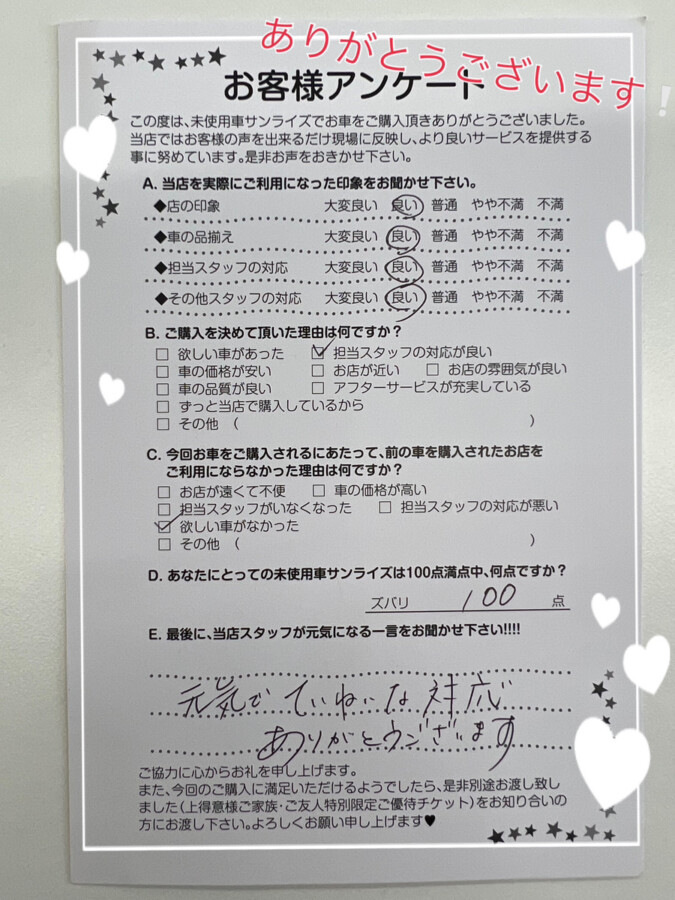 ありがとうございます！
お客様アンケート
この度は、未使用車サンライズでお車をご購入頂きありがとうございました。
当店ではお客様の声を出来るだけ現場に反映し、より良いサービスを提供する
事に努めています。是非お声をおきかせ下さい。
A. 当店を実際にご利用になった印象をお聞かせ下さい。
◆店の印象 大変良い 良い 普通 やや不満 不満
◆車の品揃え 大変良い 良い 普通 やや不満 不満
◆担当スタッフの対応 大変良い 良い 普通 やや不満 不満
◆その他スタッフの対応 大変良い 良い 普通 やや不満 不満
B. ご購入を決めて頂いた理由は何ですか？
□ 欲しい車があった ☑ 担当スタッフの対応が良い
□ 車の価格が安い □ お店が近い □ お店の雰囲気が良い
□ 車の品質が良い □ アフターサービスが充実している
□ ずっと当店で購入しているから
□ その他 （ ）
C. 今回お車をご購入されるにあたって、前の車を購入されたお店を
ご利用にならなかった理由は何ですか？
□ お店が遠くて不便 □ 車の価格が高い
□ 担当スタッフがいなくなった □ 担当スタッフの対応が悪い
☑ 欲しい車がなかった
□ その他 （ ）
D. あなたにとっての未使用車サンライズは100点満点中、何点ですか？
ズバリ 100 点
E. 最後に、当店スタッフが元気になる一言をお聞かせ下さい!!!!
元気で ていねいな 対応
ありがとうございます
ご協力に心からお礼を申し上げます。
また、今回のご購入に満足いただけるようでしたら、是非別途お渡し致し
ました（上得意様ご家族・ご友人特別限定ご優待チケット）をお知り合いの
方にお渡し下さい。よろしくお願い申し上げます♥